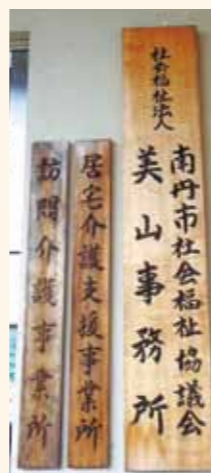 社会福祉法人
南丹市社会福祉協議会
美山事務所
居宅介護支援事業所
訪問介護事業所